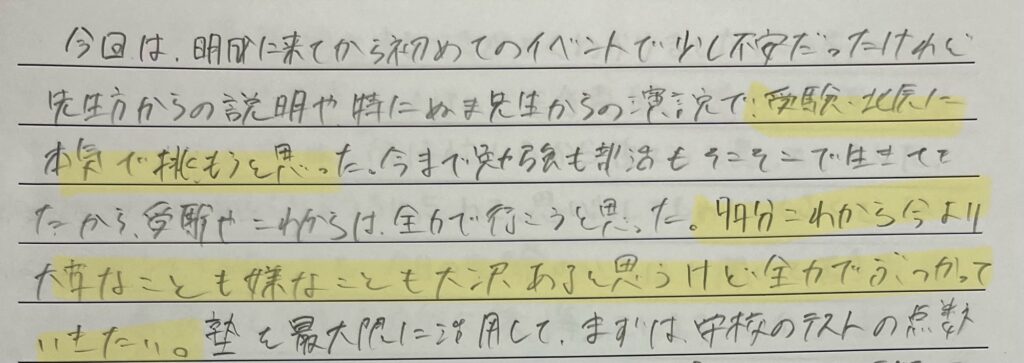 今回は、明成に来てから初めてのイベントで少し不安だったけれど
先生方からの説明や特にぬま先生からの演説で、受験、北辰に
本気で挑もうと思った。今まで勉強も部活もそこそこで生きてき
たから、受験やこれからは、全力で行こうと思った。多分これから今より
大変なことも嫌なことも大沢あると思うけど全力でぶつかって
いきたい。塾を最大限に活用して、まずは、学校のテストの点数